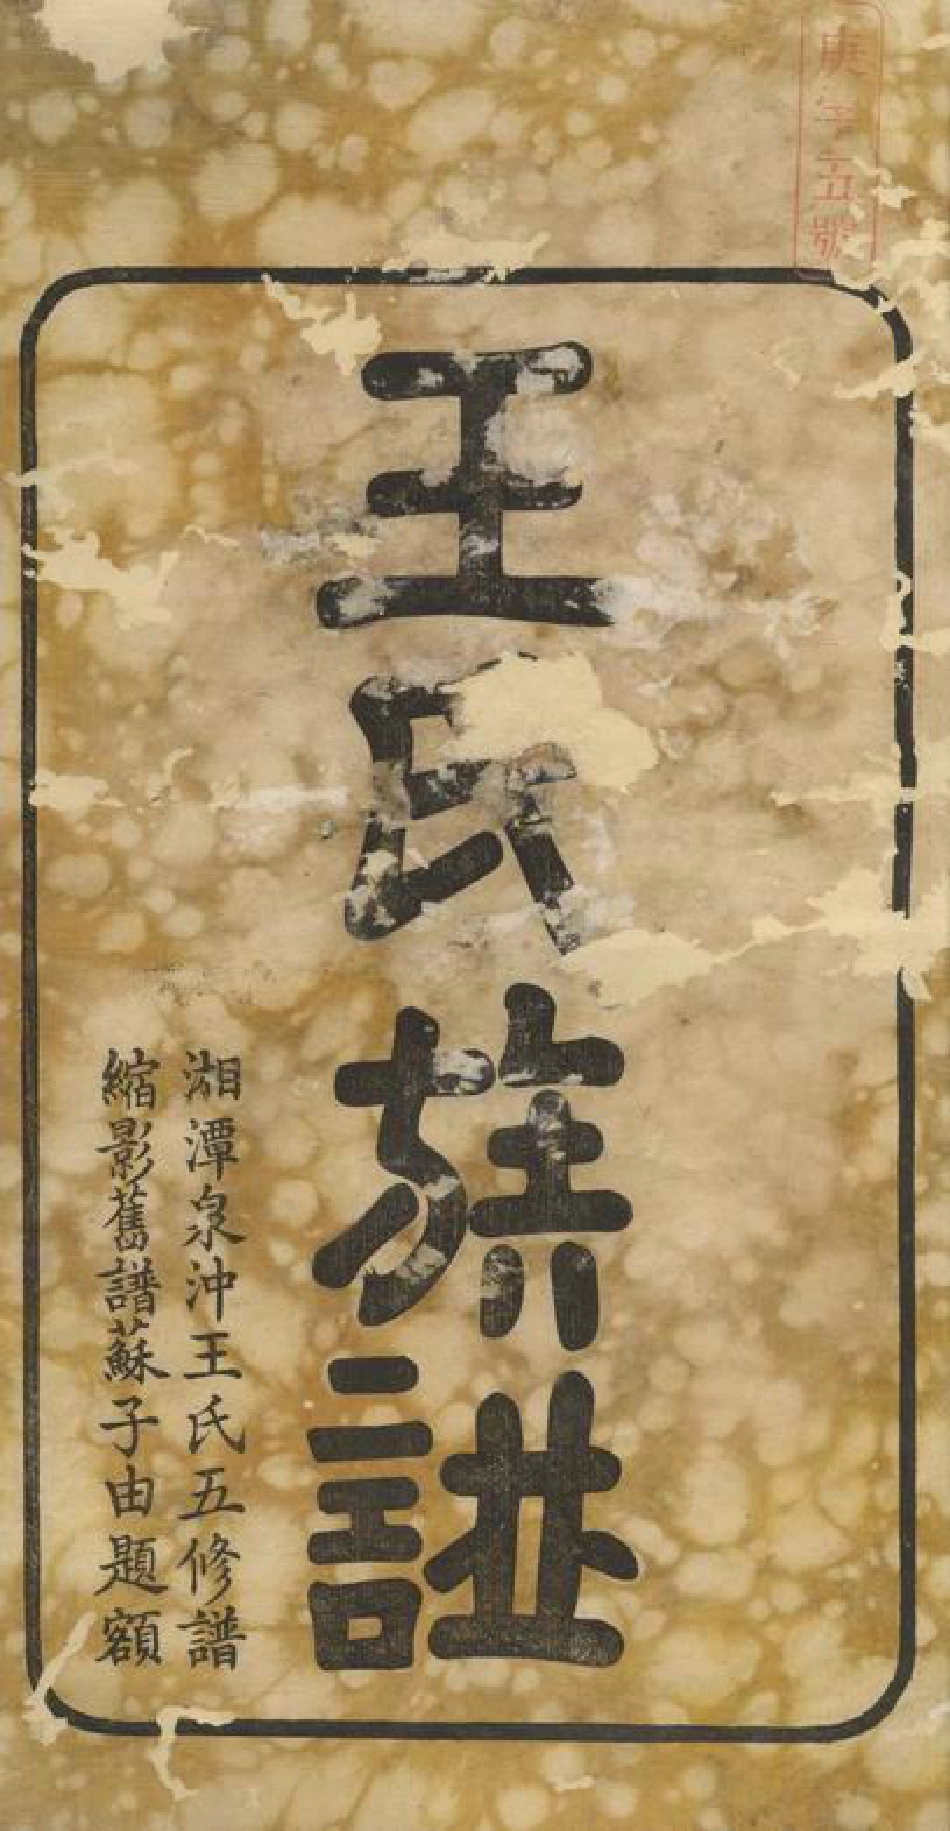 庚字五號
王氏族譜
湘潭泉沖王氏五修譜
縮影舊譜蘇子由題額